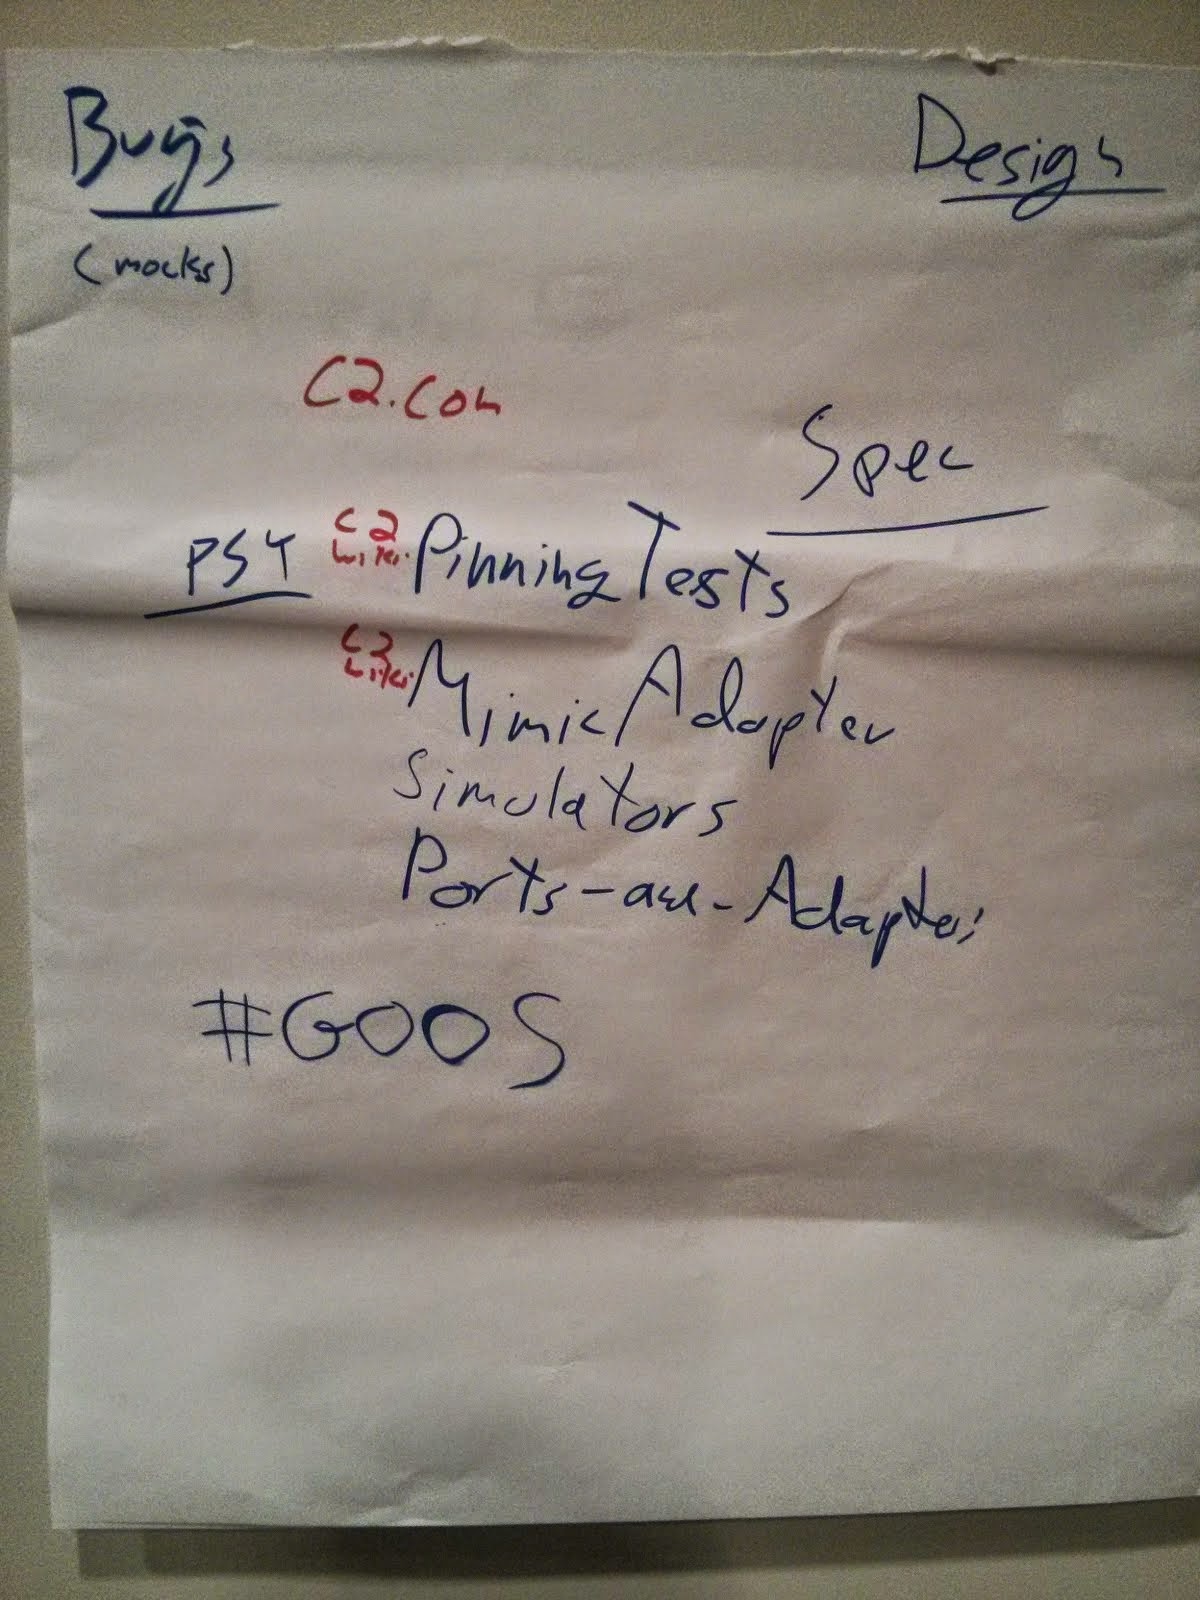 Bugs Design
(mocks)
C2.com
Spec
PSY C2 wiki: PinningTests
C2 wiki: MimicAdapter
Simulators
Ports-and-Adapters
#GOOS